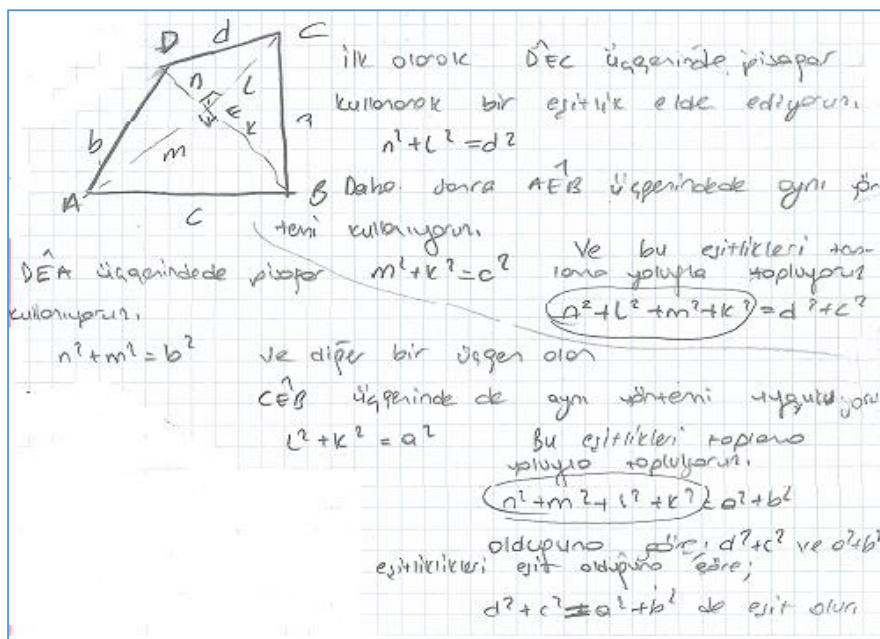 D d C
n L
b E k a
m
A C B
ilk olarak DÊC üçgeninde pisagor
kullanarak bir eşitlik elde ediyoruz.
n²+L²=d²
Daha sonra AÊB üçgenindede aynı yön-
temi kullanıyoruz.
m²+k²=c²
Ve bu eşitlikleri
yoluyla topluyoruz
n²+L²+m²+k² = d²+c²
DÊA üçgenindede pisagor
kullanıyoruz.
n²+m²=b²
ve diğer bir üçgen olan
CÊB üçgeninde de aynı yöntemi uyguluyoruz
L²+k² = a²
Bu eşitlikleri toplama
yoluyla topluyoruz.
n²+m²+L²+k² = a²+b²
olduğuna göre; d²+c² ve a²+b²
eşitliklikleri eşit olduğuna göre;
d²+c² = a²+b² de eşit olur.